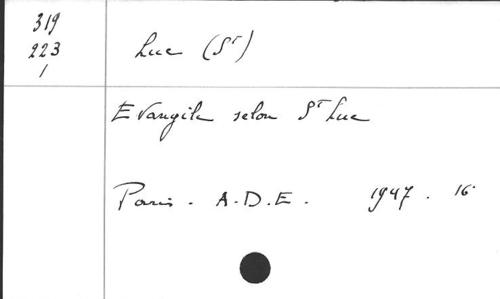 319
223
1
Luc (St)
Evangile selon St Luc
Paris. A.D.E. 1947. 16°